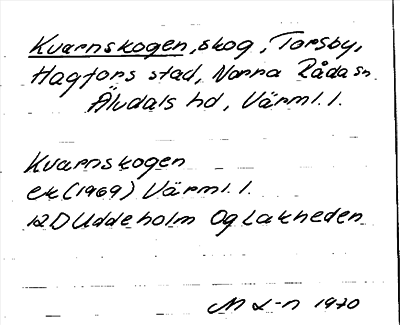 Kvarnskogen, skog, Torsby,
Hagfors stad, Norra Råda sn
Älvdals hd, Värml. l.
Kvarnskogen
ek (1969) Värml. l.
12D Uddeholm Og Lakheden
M L-n 1970